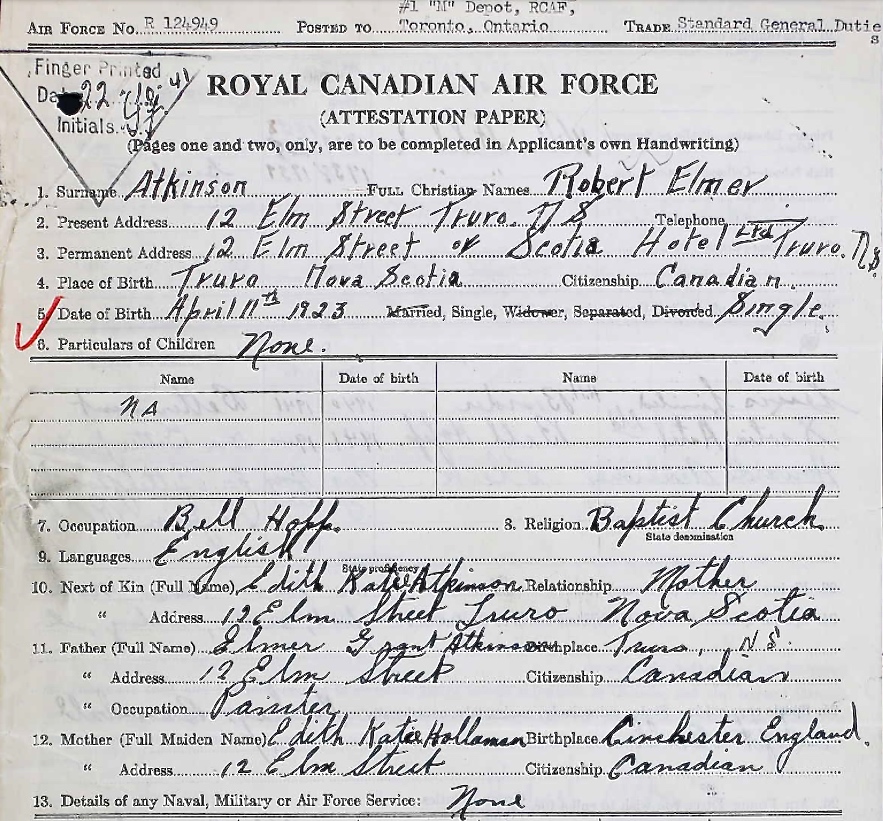 #1 "M" Depot, RCAF,
AIR FORCE No. R 124949 POSTED TO Toronto, Ontario. TRADE Standard General Duties
Finger Printed
Date 22 41
Initials
ROYAL CANADIAN AIR FORCE
(ATTESTATION PAPER)
(Pages one and two, only, are to be completed in Applicant's own Handwriting)
1. Surname Atkinson FULL Christian Names Robert Elmer
2. Present Address 12 Elm Street Truro. N S Telephone
3. Permanent Address 12 Elm Street or Scotia Hotel Ltd Truro. N S
4. Place of Birth Truro Nova Scotia Citizenship Canadian.
5. Date of Birth April 11th 1923 Married, Single, Widower, Separated, Divorced. Single.
6. Particulars of Children None.
Name Date of birth Name Date of birth
NA
7. Occupation Bell Hopp. 8. Religion Baptist Church
State denomination
9. Languages English
State proficiency
10. Next of Kin (Full Name) Edith Katie Atkinson Relationship Mother
" Address 12 Elm Street Truro Nova Scotia
11. Father (Full Name) Elmer Grant Atkinson Birthplace Truro, N S.
" Address 12 Elm Street Citizenship Canadian
" Occupation Painter
12. Mother (Full Maiden Name) Edith Katie Birthplace England.
" Address 12 Elm Street Citizenship Canadian
13. Details of any Naval, Military or Air Force Service: None